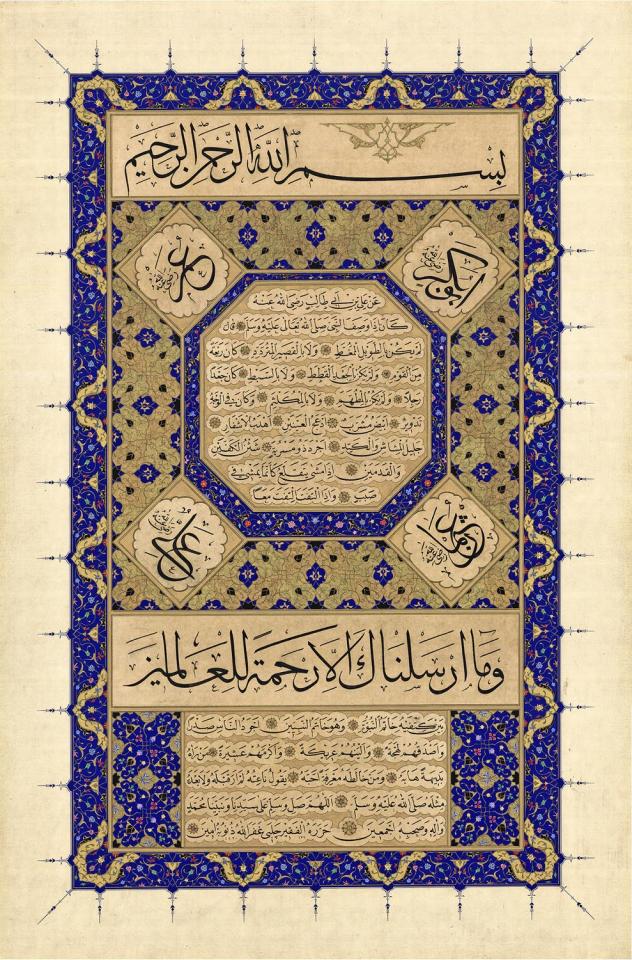 بسم الله الرحمن الرحيم
ابو بكر رضي الله عنه
عمر رضي الله عنه
عن علي بن ابي طالب رضي الله عنه
كان اذا وصف النبي صلى الله تعالى عليه وسلم قال
لم يكن بالطويل الممغط ولا بالقصير المتردد كان ربعة
من القوم ولم يكن بالجعد القطط ولا بالسبط كان جعدا
رجلا ولم يكن بالمطهم ولا بالمكلثم وكان في الوجه
تدوير ابيض مشرب ادعج العينين اهدب الاشفار
جليل المشاش والكتد اجرد ذو مسربة شثن الكفين
والقدمين اذا مشى يتقلع كأنما يمشي في
صبب واذا التفت التفت معا
عثمان رضي الله عنه
علي رضي الله عنه
وما ارسلناك الا رحمة للعالمين
بين كتفيه خاتم النبوة وهو خاتم النبيين اجود الناس صدرا
واصدقهم لهجة والينهم عريكة واكرمهم عشيرة من رآه
بديهة هابه ومن خالطه معرفة احبه يقول ناعته لم ار قبله ولا بعده
مثله صلى الله عليه وسلم اللهم صل وسلم على سيدنا ونبينا محمد
وآله وصحبه اجمعين حرره الفقير غفر الله ذنوبه آمين